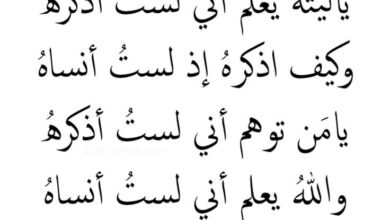 ياليته يعلم أني لستُ أذكرهُ
وكيف اذكرهُ إذ لستُ أنساهُ
يامَن توهم أني لستُ أذكرهُ
واللهُ يعلم أني لستُ أنساهُ